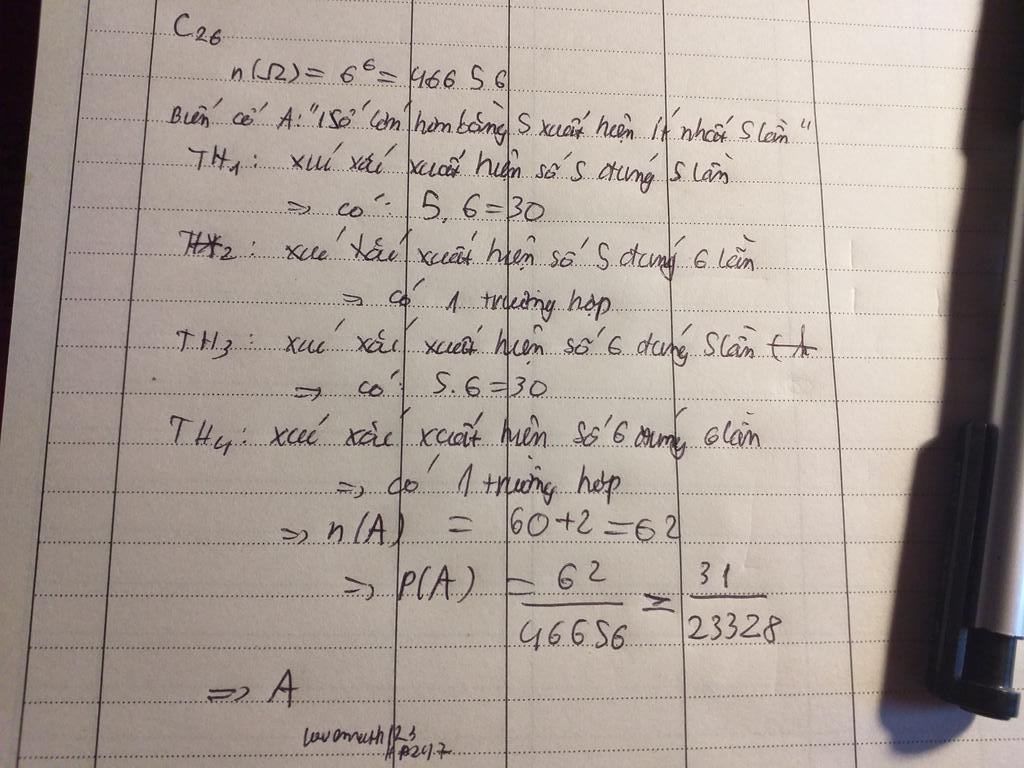 C26
n(Ω) = 6^6 = 46656
Biến cố A: "1 số lớn hơn bằng 5 xuất hiện ít nhất 5 lần"
TH1: xuć xắć xuất hiện số 5 đứng 5 lần
=> có: 5.6=30
TH2: xuć xắć xuất hiện số 5 đứng 6 lần
=> có 1 trường hợp
TH3: xuć xắć xuất hiện số 6 đứng 5 lần
=> có: 5.6=30
TH4: xuć xắć xuất hiện số 6 đứng 6 lần
=> có 1 trường hợp
=> n(A) = 60+2=62
=> P(A) = 62/46656 = 31/23328
=> A